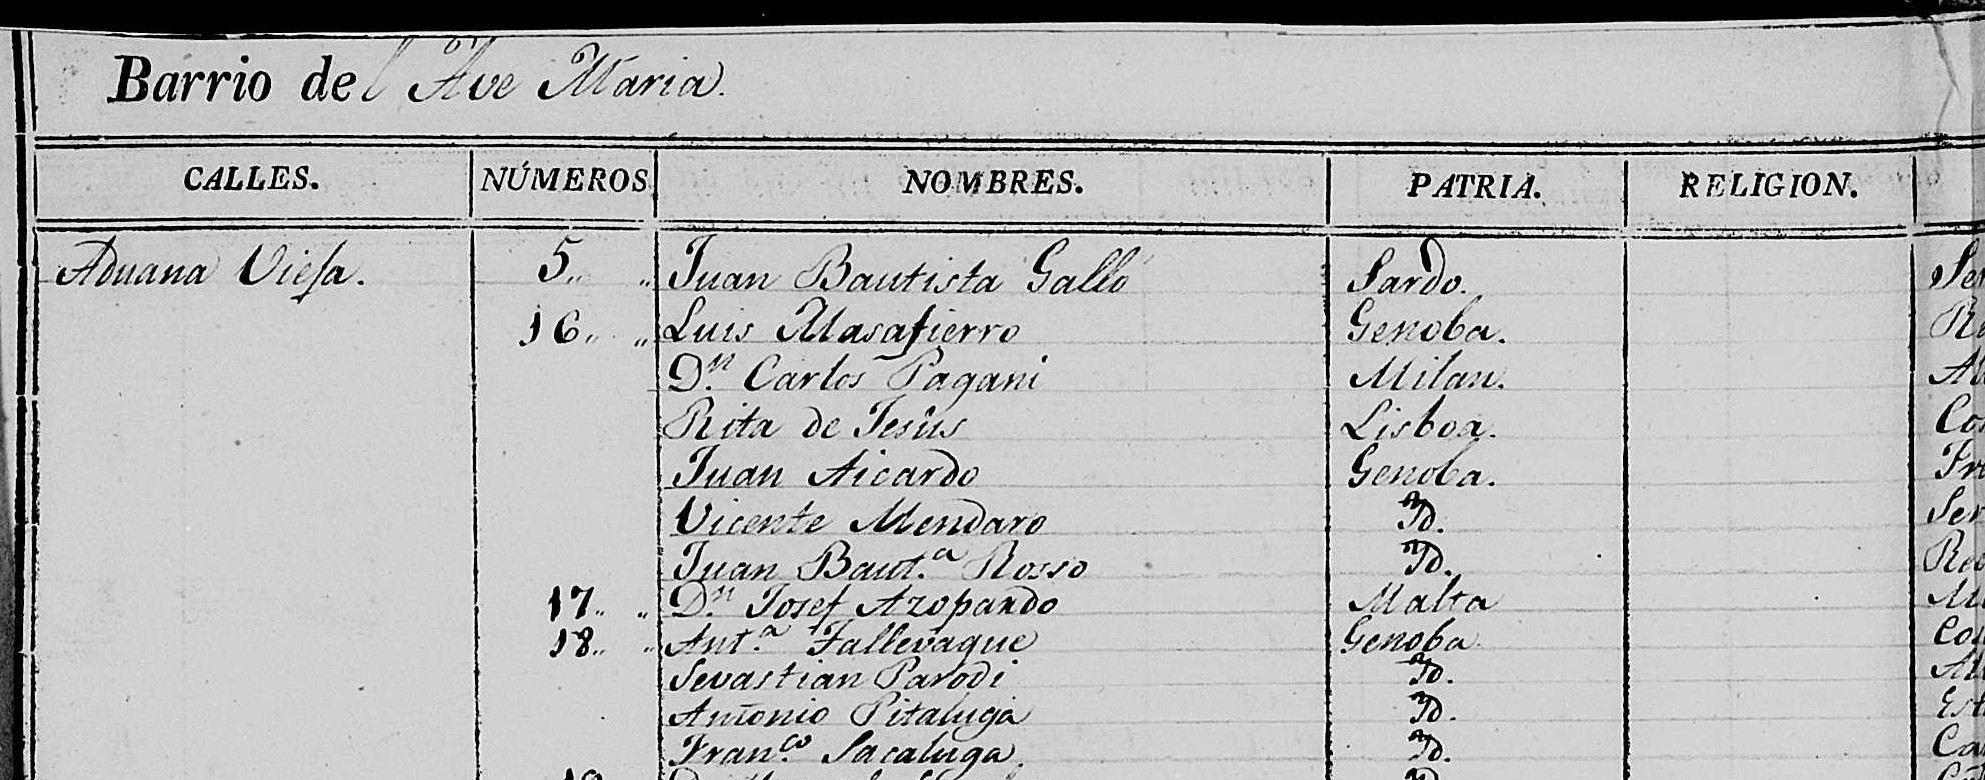 Barrio del Ave Maria.
CALLES. NÚMEROS NOMBRES. PATRIA. RELIGION.
Aduana Viesa. 5.. .. Juan Bautista Gallo Sardo. Se
16.. .. Luis Masafierro Genoba. Re
D.n Carlos Pagani Milan. Al
Rita de Jesus Lisboa. Co
Juan Aicardo Genoba. Fr
Vicente Mendaro Yd. Ser
Juan Baut.a Rosso Yd. Re
17.. .. D.n Josef Azopardo Malta M
18.. .. Ant.a Fallevaque Genoba Co
Sevastian Parodi Yd. Al
Antonio Pitaluga Yd. Est
Fran.co Sacaluga. Yd. Ca